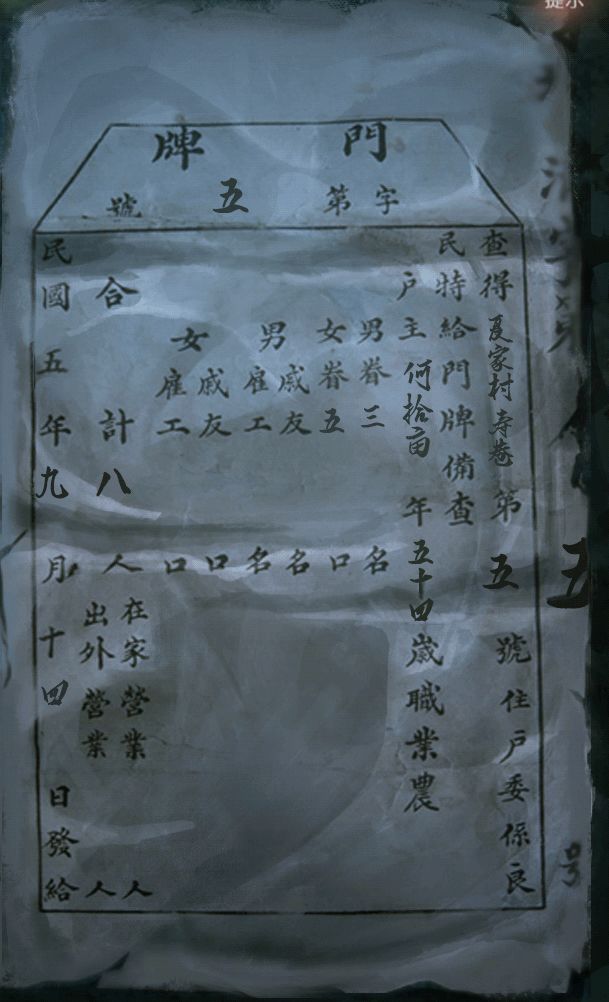 提示
門牌
字第五號
查得夏家村寺巷第五號住户委係良
民特給門牌備查
户主何拾亩年五十四歲職業農
男眷三名
女眷五口
男戚友名
雇工名
女戚友口
雇工口
合計八人在家營業人
出外營業人
民國五年九月十四日發給
五
号